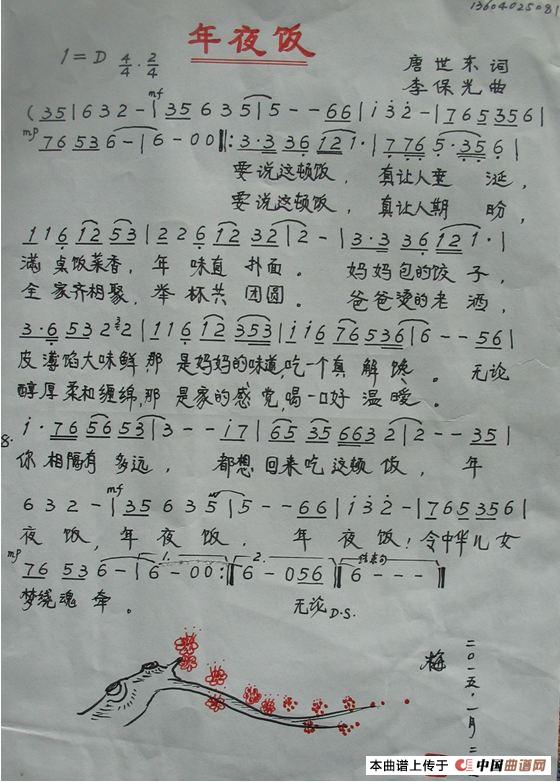 13604025081
年夜饭
1=D 4/4 . 2/4
唐世东 词
李保光 曲
mf
( 35 | 6 3 2 - | 35 6 3 5 | 5 - - 66 | i 3 2 - | 765 356 |
mp
76 536 - | 6 - 0 0 ‖: 3·3 36 121· | 776 5·35 6 |
要说这顿饭，真让人垂涎，
要说这顿饭，真让人期盼，
116 12 53 | 226 12 32 | 2 - | 3·3 36 12 1· |
满桌饭菜香，年味直扑面。妈妈包的饺子，
全家齐相聚，举杯共团圆。爸爸烫的老酒，
3·6 53 2 32 | 116 12 353 | ii6 76536 | 6 - - 56 |
皮薄馅大味鲜那是妈妈的味道，吃一个真解馋。无论
醇厚柔和缠绵，那是家的感觉，喝一口好温暖。
i· 76 5653 | 3 - - i7 | 65 35 663 2 | 2 - - 35 |
8.
你相隔有多远，都想回来吃这顿饭，年
mf
6 3 2 - | 35 6 3 5 | 5 - - 66 | i·3·2 - | 765 356 |
夜饭，年夜饭，年夜饭！令中华儿女
mp
76 536 - | 6 - 0 0 :‖ 6 - 056 ‖ 6 - - - ‖
1.
2.
结束句
梦绕魂牵。
无论 D.S.
二〇一五.一月.二
本曲谱上传于 中国曲谱网